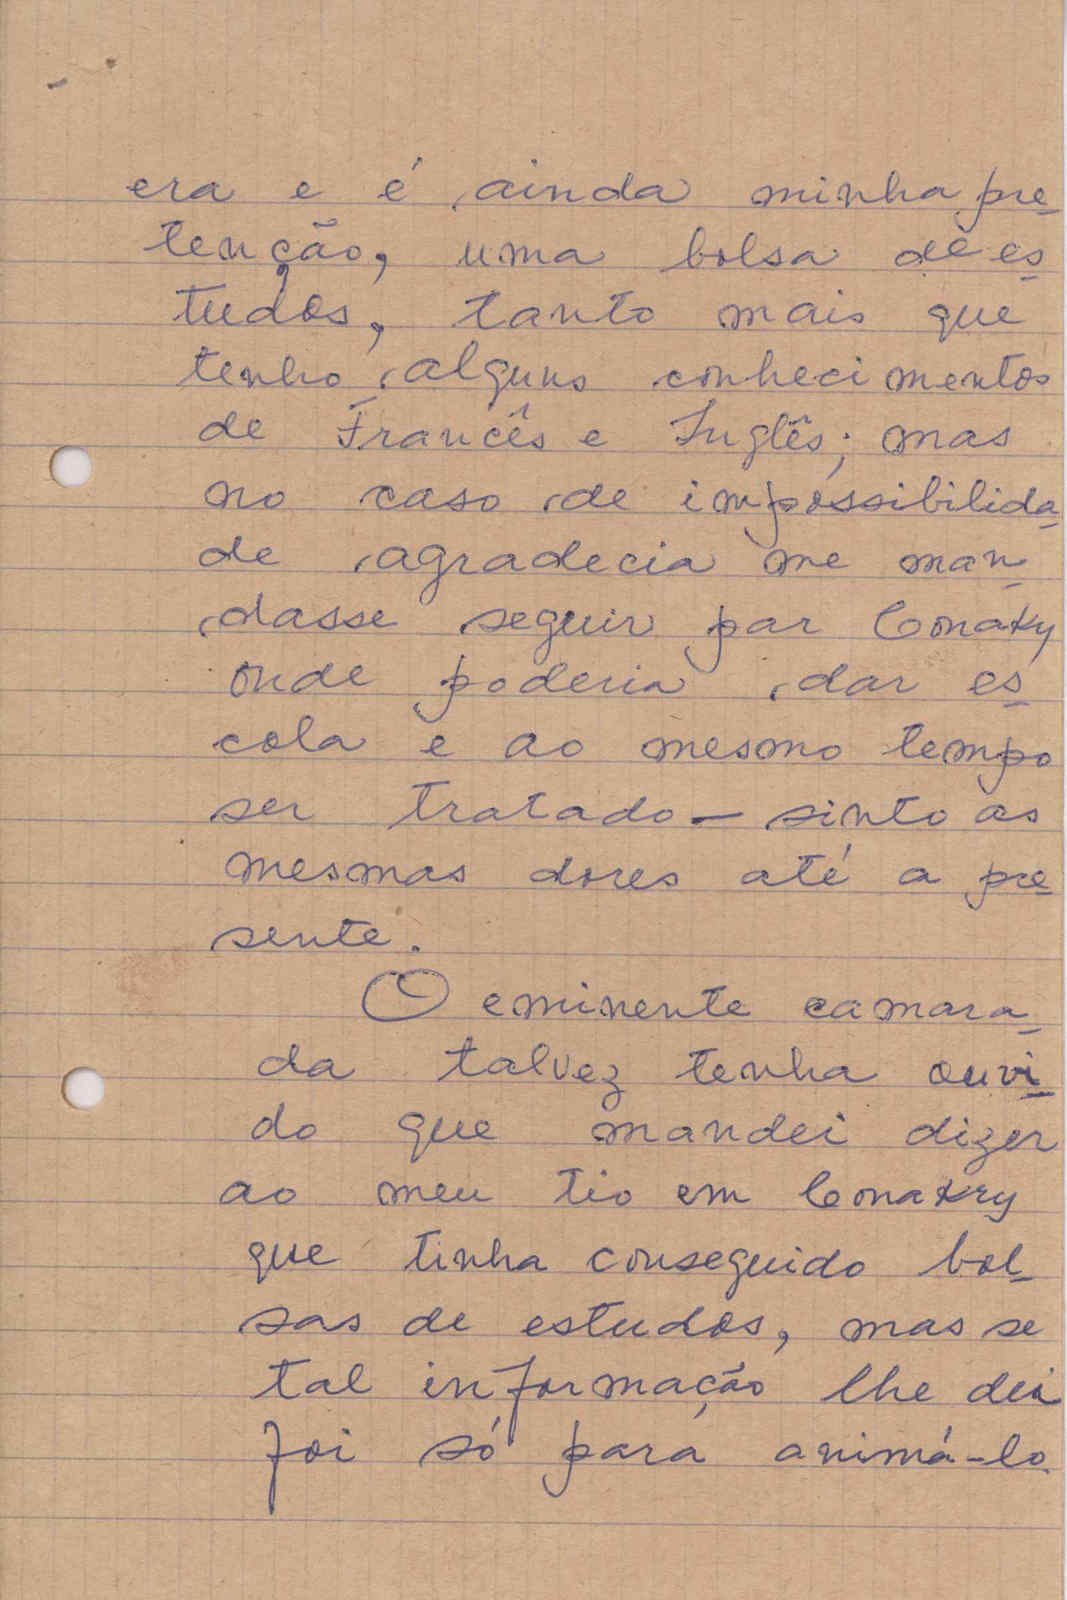 era e é ainda minha pre-
tenção, uma bolsa de es-
tudos, tanto mais que
tenho alguns conhecimentos
de Francês e Inglês; mas
no caso de impossibilida-
de agradecia me man-
dasse seguir par Conaky
onde poderia dar es-
cola e ao mesmo tempo
ser tratado - sinto as
mesmas dores até a pre-
sente.
O eminente camara-
da talvez tenha ouvi-
do que mandei dizer
ao meu tio em Conakry
que tinha conseguido bol-
sas de estudos, mas se
tal informação lhe dei
foi só para animá-lo